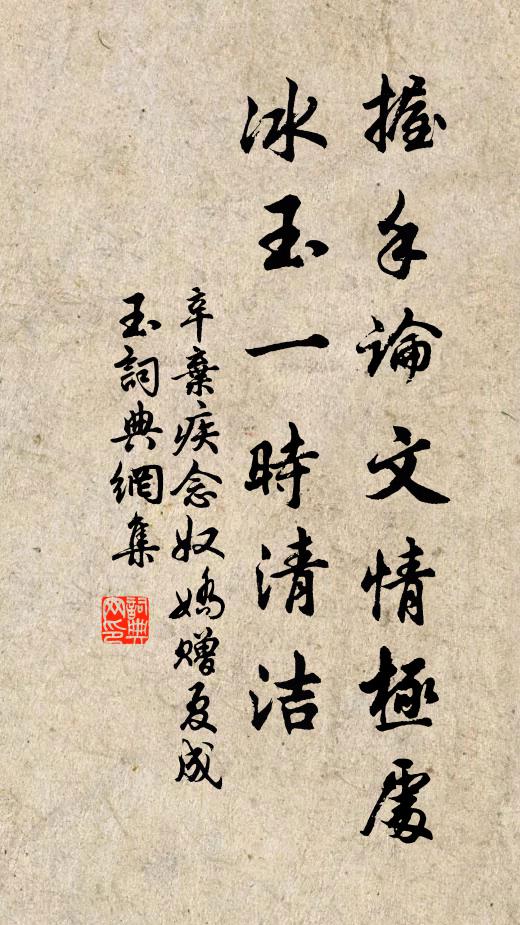 握手論文情極處
冰玉一時清洁
辛棄疾念奴嬌贈夏成
玉詞典網集
詞典
网印